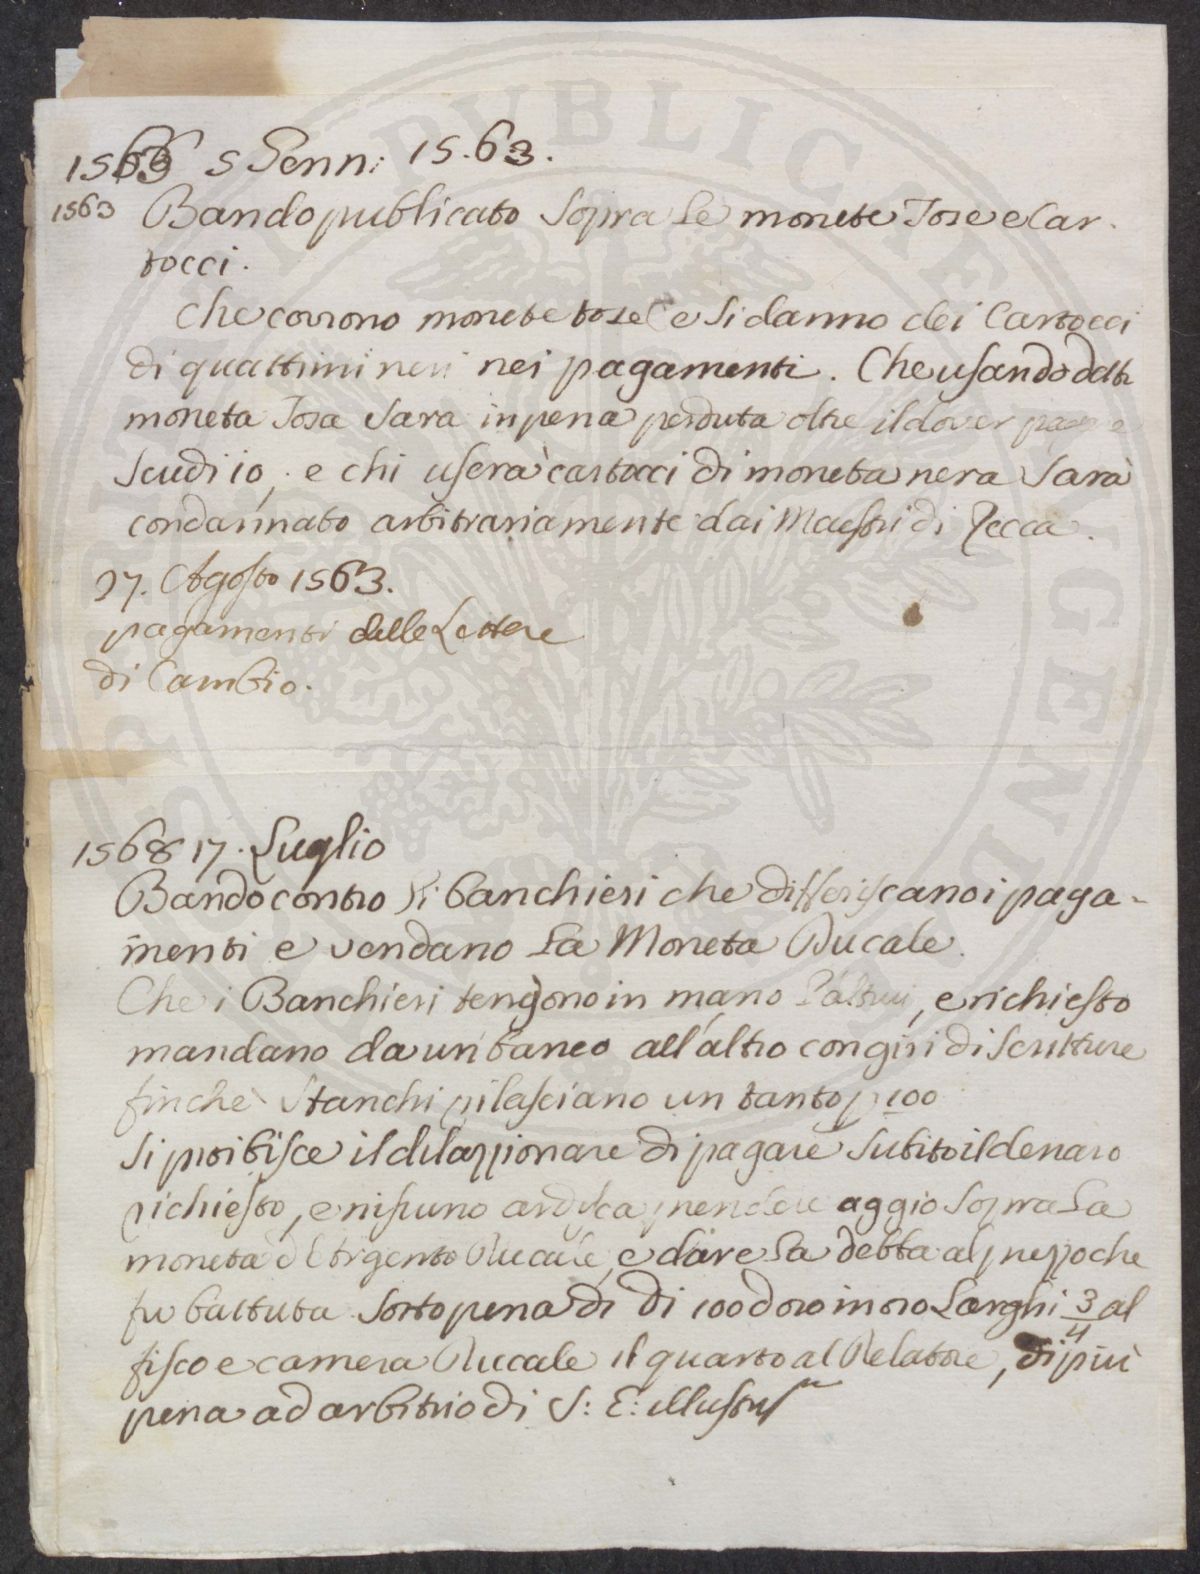 1563 5 Genn: 15.63.
1563 Bando publicato sopra le monete Tose e Car-
tocci.
Che corrono monete tose e si danno dei Cartocci
di quattrini neri nei pagamenti. Che usando detta
moneta Tosa sarà in pena perduta oltre il dover pagare
scudi 10, e chi userà cartocci di moneta nera sarà
condannato arbitrariamente dai Maestri di Zecca.
27. Agosto 1563.
pagamenti delle Lettere
di Cambio.
1568 17. Luglio
Bando contro li banchieri che differiscano i paga-
menti e vendano la Moneta Ducale.
Che i Banchieri tengono in mano l'altrui, e richiesto
mandano da un banco all'altro con giri di scritture
finchè stanchi rilasciano un tanto p 100
Si proibisce il dilazzionare di pagare subito il denaro
richiesto, e nisuno ardisca prendere aggio sopra la
moneta d'Argento Ducale, e dare la detta al prezzo che
fu battuta sotto pena di di 100 d'oro in oro Larghi 3/4 al
fisco e camera Ducale il quarto al Relatore, di più
pena ad arbitrio di S: E: Illustris